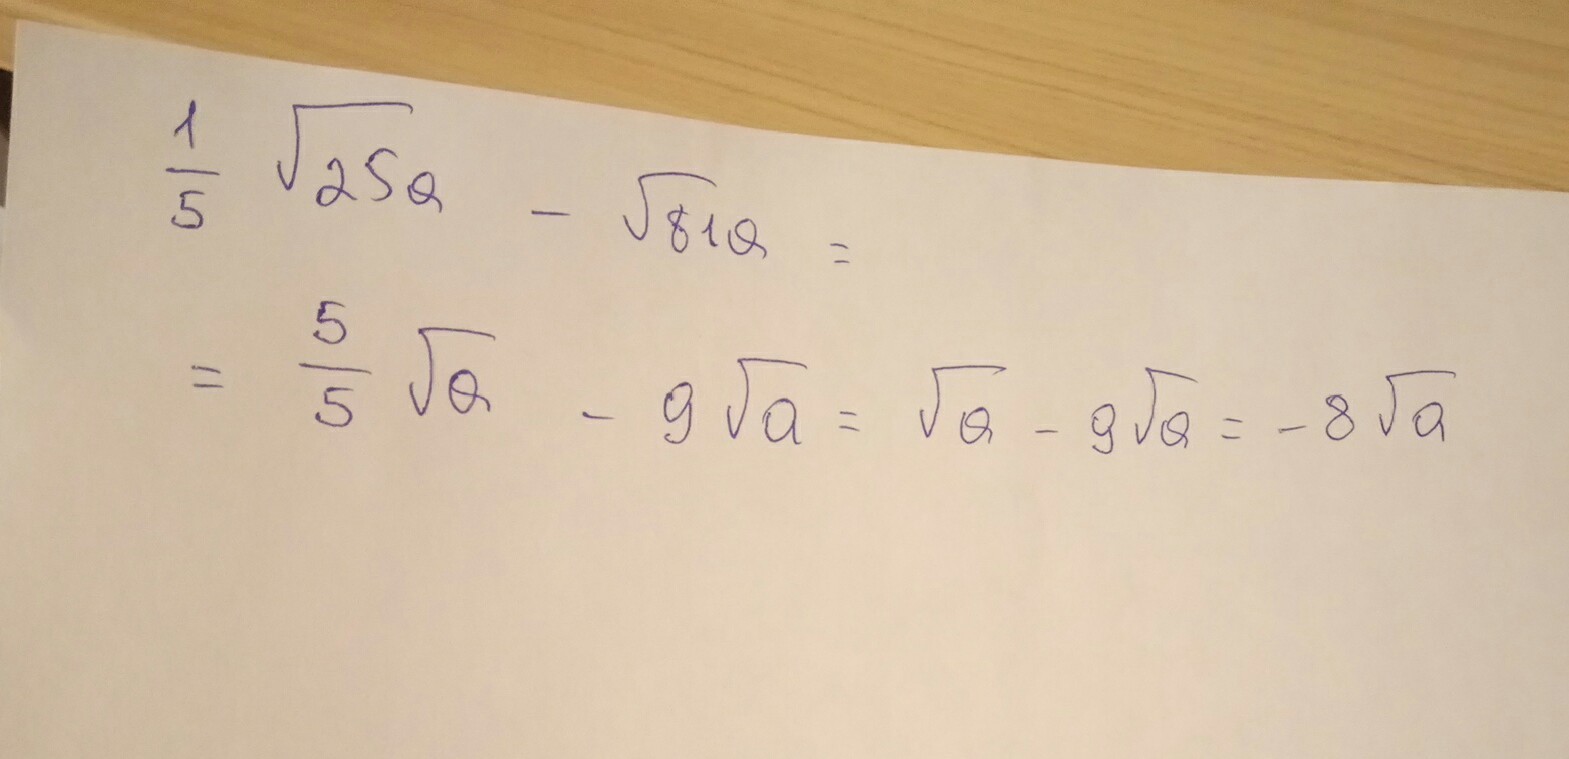 1/5 √25a - √81a =
= 5/5 √a - 9√a = √a - 9√a = -8√a